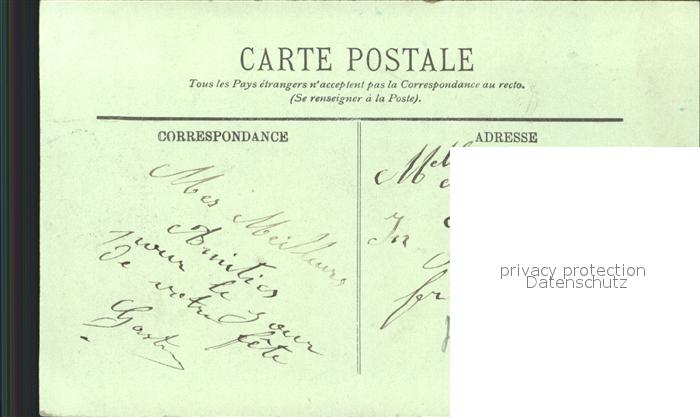 CARTE POSTALE
Tous les Pays étrangers n'acceptent pas la Correspondance au recto.
(Se renseigner à la Poste).
CORRESPONDANCE
Mes Meilleurs
Amitiés
pour le jour
de votre fête
Gaston
ADRESSE
privacy protection
Datenschutz